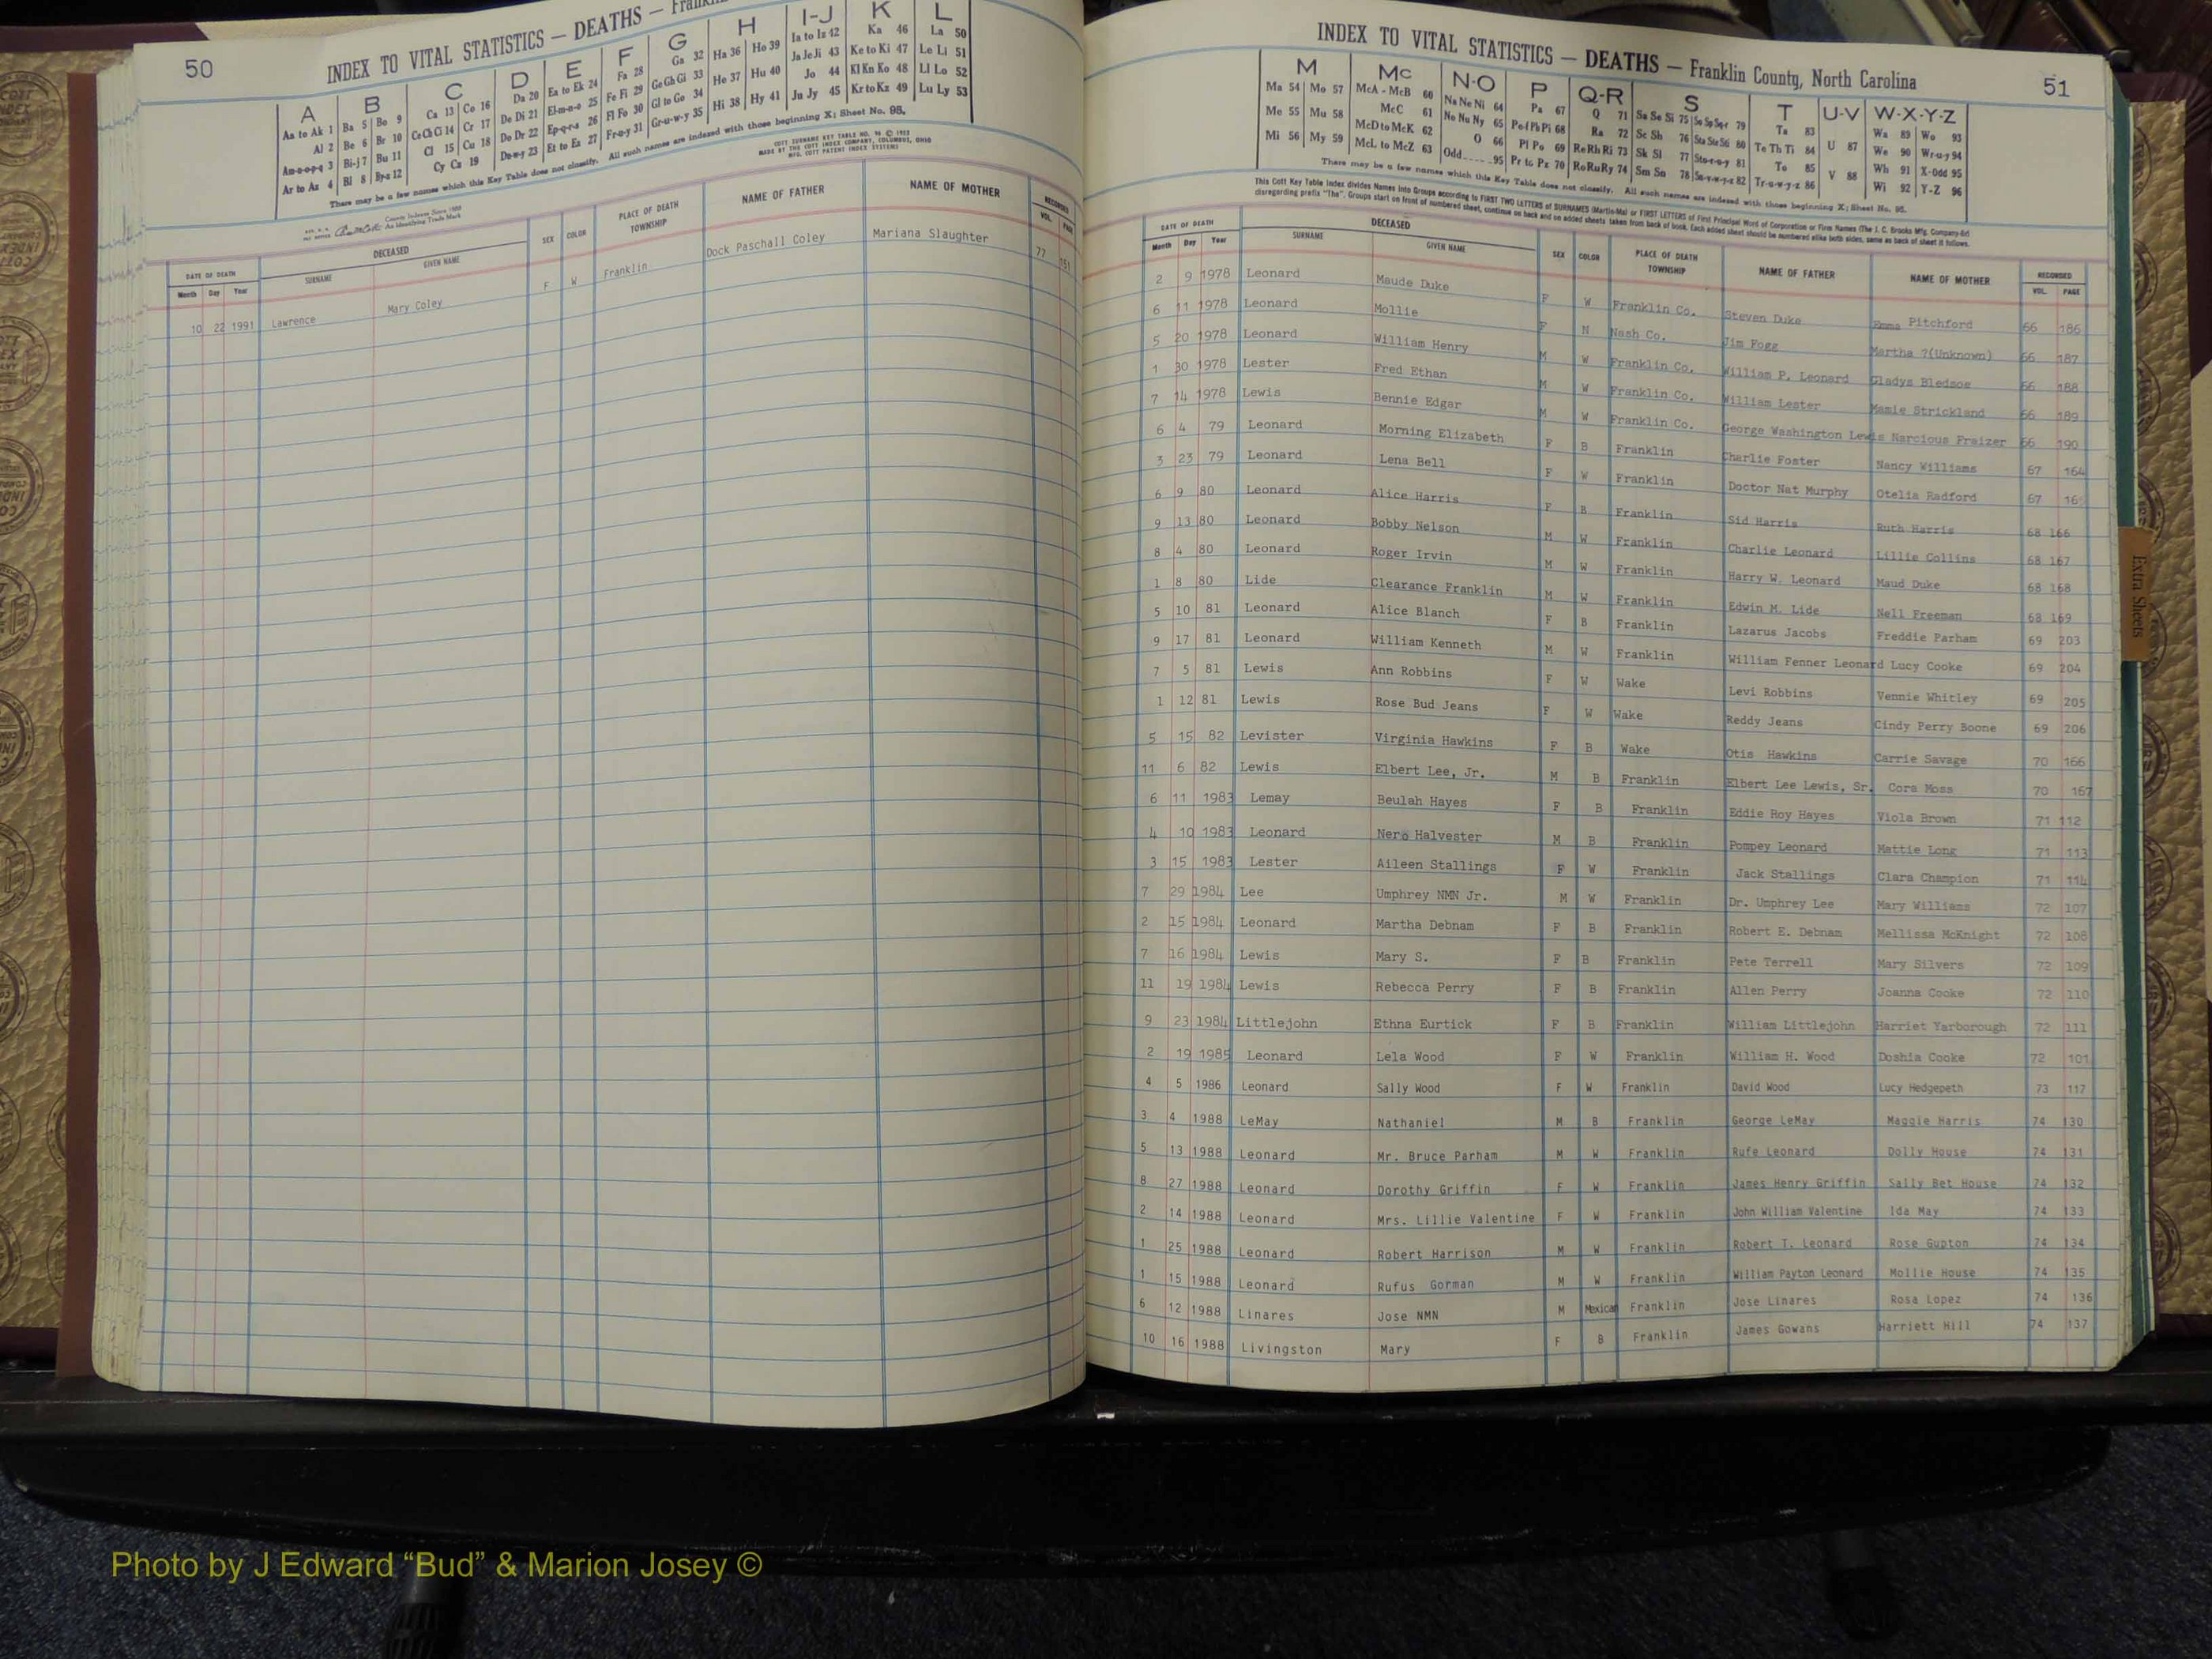 50
INDEX TO VITAL STATISTICS — DEATHS —
A B C D E F G H I-J K L
Aa to Ak 1 Ba 5 Bo 9 Ca 13 Co 16 Da 20 Ea to Ek 24 Fa 28 Ga 32 Ha 36 Ho 39 Ia to Iz 42 Ka 46 La 50
Al 2 Be 6 Br 10 Ce Ch Ci 14 Cr 17 De Di 21 El-m-n-o 25 Fe Fi 29 Ge Gh Gi 33 He 37 Hu 40 Ja Je Ji 43 Ke to Ki 47 Le Li 51
Am-n-o-p-q 3 Bi-j 7 Bu 11 Cl 15 Cu 18 Do Dr 22 Ep-q-r-s 26 Fl Fo 30 Gl to Go 34 Hi 38 Hy 41 Jo 44 Kl Kn Ko 48 Ll Lo 52
Ar to Az 4 Bl 8 By-z 12 Cy Cz 19 Du-w-y 23 Et to Ez 27 Fr-u-y 31 Gr-u-w-y 35 Ju Jy 45 Kr to Kz 49 Lu Ly 53
There may be a few names which this Key Table does not classify. All such names are indexed with those beginning X; Sheet No. 95.
COTT SURNAME KEY TABLE NO. 96 © 1953
MADE BY THE COTT INDEX COMPANY, COLUMBUS, OHIO
MFG. COTT PATENT INDEX SYSTEMS
County Indexes Since 1888
An Identifying Trade Mark
DATE OF DEATH DECEASED SEX COLOR PLACE OF DEATH TOWNSHIP NAME OF FATHER NAME OF MOTHER RECORDED
Month Day Year SURNAME GIVEN NAME VOL. PAGE
10 22 1991 Lawrence Mary Coley F W Franklin Dock Paschall Coley Mariana Slaughter 77 151
INDEX TO VITAL STATISTICS — DEATHS — Franklin County, North Carolina 51
M Mc N-O P Q-R S T U-V W-X-Y-Z
Ma 54 Mo 57 McA - McB 60 Na Ne Ni 64 Pa 67 Q 71 Sa Se Si 75 So Sp Sq-r 79 Ta 83 U 87 Wa 89 Wo 93
Me 55 Mu 58 McC 61 No Nu Ny 65 Pe-f Ph Pi 68 Ra 72 Sc Sh 76 Sta Ste Sti 80 Te Th Ti 84 V 88 We 90 Wr-u-y 94
Mi 56 My 59 McD to McK 62 O 66 Pl Po 69 Re Rh Ri 73 Sk Sl 77 Sto-r-u-y 81 To 85 Wh 91 X-Odd 95
McL to McZ 63 Odd 95 Pr to Pz 70 Ro Ru Ry 74 Sm Sn 78 Su-v-w-y-z 82 Tr-u-w-y-z 86 Wi 92 Y-Z 96
There may be a few names which this Key Table does not classify. All such names are indexed with those beginning X; Sheet No. 95.
This Cott Key Table Index divides Names into Groups according to FIRST TWO LETTERS of SURNAMES (Martin-Ma) or FIRST LETTERS of First Principal Word of Corporation or Firm Names (The J. C. Brooks Mfg. Company-Br)
disregarding prefix "The". Groups start on front of numbered sheet, continue on back and on added sheets taken from back of book. Each added sheet should be numbered alike both sides, same as back of sheet it follows.
DATE OF DEATH DECEASED SEX COLOR PLACE OF DEATH TOWNSHIP NAME OF FATHER NAME OF MOTHER RECORDED
Month Day Year SURNAME GIVEN NAME VOL. PAGE
2 9 1978 Leonard Maude Duke F W Franklin Co. Steven Duke Emma Pitchford 66 186
6 11 1978 Leonard Mollie F N Nash Co. Jim Fogg Martha ?(Unknown) 66 187
5 20 1978 Leonard William Henry M W Franklin Co. William P. Leonard Gladys Bledsoe 66 188
1 30 1978 Lester Fred Ethan M W Franklin Co. William Lester Mamie Strickland 66 189
7 14 1978 Lewis Bennie Edgar M W Franklin Co. George Washington Lewis Narcious Fraizer 66 190
6 4 79 Leonard Morning Elizabeth F B Franklin Charlie Foster Nancy Williams 67 164
3 23 79 Leonard Lena Bell F W Franklin Doctor Nat Murphy Otelia Radford 67
6 9 80 Leonard Alice Harris F B Franklin Sid Harris Ruth Harris 68 166
9 13 80 Leonard Bobby Nelson M W Franklin Charlie Leonard Lillie Collins 68 167
8 4 80 Leonard Roger Irvin M W Franklin Harry W. Leonard Maud Duke 68 168
1 8 80 Lide Clearance Franklin M W Franklin Edwin M. Lide Nell Freeman 68 169
5 10 81 Leonard Alice Blanch F B Franklin Lazarus Jacobs Freddie Parham 69 203
9 17 81 Leonard William Kenneth M W Franklin William Fenner Leonard Lucy Cooke 69 204
7 5 81 Lewis Ann Robbins F W Wake Levi Robbins Vennie Whitley 69 205
1 12 81 Lewis Rose Bud Jeans F W Wake Reddy Jeans Cindy Perry Boone 69 206
5 15 82 Levister Virginia Hawkins F B Wake Otis Hawkins Carrie Savage 70 166
11 6 82 Lewis Elbert Lee, Jr. M B Franklin Elbert Lee Lewis, Sr. Cora Moss 70 167
6 11 1983 Lemay Beulah Hayes F B Franklin Eddie Roy Hayes Viola Brown 71 112
4 10 1983 Leonard Nero Halvester M B Franklin Pompey Leonard Mattie Long 71 113
3 15 1983 Lester Aileen Stallings F W Franklin Jack Stallings Clara Champion 71 114
7 29 1984 Lee Umphrey NMN Jr. M W Franklin Dr. Umphrey Lee Mary Williams 72 107
2 15 1984 Leonard Martha Debnam F B Franklin Robert E. Debnam Mellissa McKnight 72 108
7 16 1984 Lewis Mary S. F B Franklin Pete Terrell Mary Silvers 72 109
11 19 1984 Lewis Rebecca Perry F B Franklin Allen Perry Joanna Cooke 72 110
9 23 1984 Littlejohn Ethna Eurtick F B Franklin William Littlejohn Harriet Yarborough 72 111
2 19 1985 Leonard Lela Wood F W Franklin William H. Wood Doshia Cooke 72 101
4 5 1986 Leonard Sally Wood F W Franklin David Wood Lucy Hedgepeth 73 117
3 4 1988 LeMay Nathaniel M B Franklin George LeMay Maggie Harris 74 130
5 13 1988 Leonard Mr. Bruce Parham M W Franklin Rufe Leonard Dolly House 74 131
8 27 1988 Leonard Dorothy Griffin F W Franklin James Henry Griffin Sally Bet House 74 132
2 14 1988 Leonard Mrs. Lillie Valentine F W Franklin John William Valentine Ida May 74 133
1 25 1988 Leonard Robert Harrison M W Franklin Robert T. Leonard Rose Gupton 74 134
1 15 1988 Leonard Rufus Gorman M W Franklin William Payton Leonard Mollie House 74 135
6 12 1988 Linares Jose NMN M Mexican Franklin Jose Linares Rosa Lopez 74 136
10 16 1988 Livingston Mary F B Franklin James Gowans Harriett Hill 74 137
Extra Sheets
Photo by J Edward “Bud” & Marion Josey ©